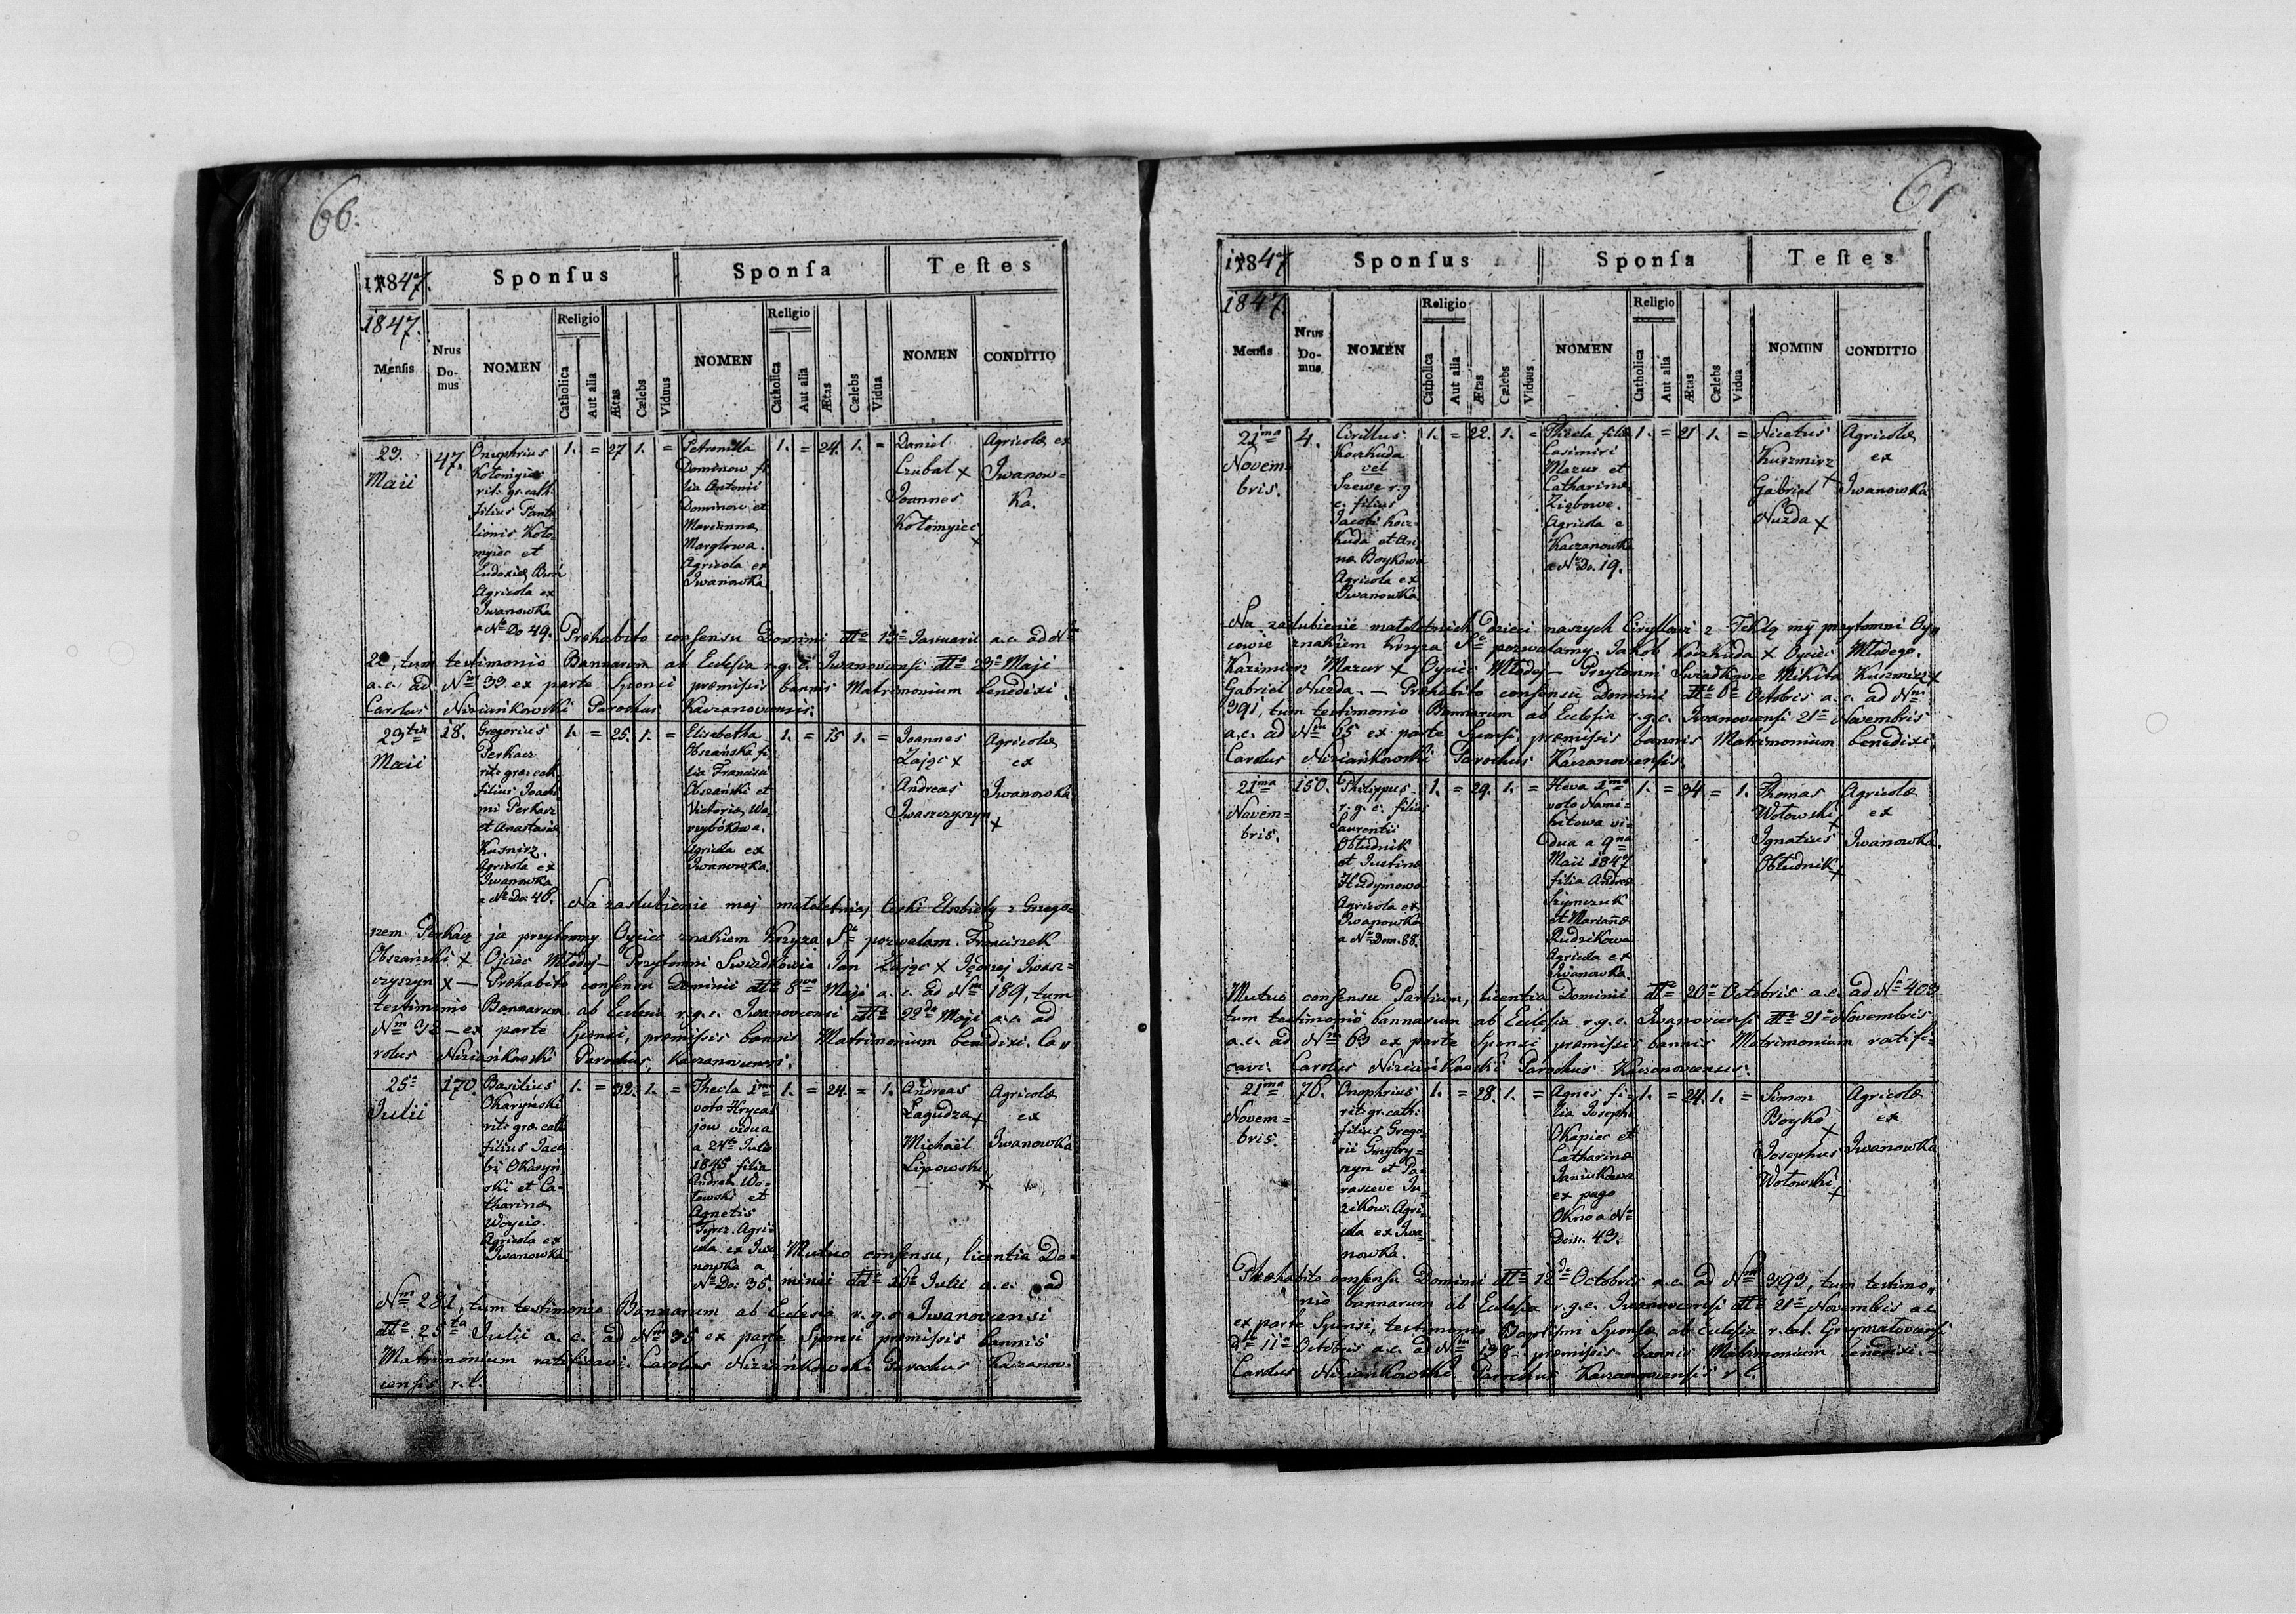 66.
1847. Sponſus Sponſa Teſtes
1847.
Menſis
Nrus Do-mus
NOMEN
Religio
Catholica
Aut alia
Ætas
Cælebs
Viduus
NOMEN
Religio
Catholica
Aut alia
Ætas
Cælebs
Vidua
NOMEN
CONDITIO
23.
Maii
47.
Onuphrius
Kołomyiec
rit: gr. cath.
filius Pante
lionis Koło
myiec et
Eudoxiæ
Agricola ex
Iwanowka
a No Do 49.
1. = 27 1. =
Petronilla
Dominow fi
lia Antonii
Dominow et
Mariannæ
Marglowa.
Agricola ex
Iwanowka
1. = 24. 1. =
Daniel
Czubat x
Joannes
Kołomyiec
x
Agricolæ ex
Iwanow=
ka.
Præhabito consensu Dominii dto Januarii a.c. ad No
22, tum testimonio Bannarum ab Eclesia r.g.c. Iwanovcensi dto 23a Maji
a.c. ad Nm 33 ex parte Sponsi præmissis bannis Matrimonium benedixi.
Carolus Niziańkowski Parochus Kaczanovcensis.
23tia
Maii
18.
Gregorius
Perkacz
rit: græ. cath
filius Joachi
mi Perkacz
et Anastasiæ
Kusnirz.
Agricola ex
Iwanowka
a No Do: 46.
1. = 25. 1. =
Elisabetha
Obszańska fi
lia Francisci
Obszański et
Victoriæ Wa-
rzybókowa.
Agricola ex
Iwanowka.
1. = 15 1. =
Joannes
Zając x
Andreas
Iwaszczyszyn
x
Agricolæ
ex
Iwanowka
Na zaślubienie mej małoletniej Corki Elżbiety z Grzego=
rzem Perkacz ja przytomny Oyciec znakiem Krzyża Sto pozwalam. Franciszek
Obszański x Ojciec Młodej – Przytomni Swiadkowie Jan Zając x Jędrzej Iwasz=
czyszyn x — Præhabito consensu Dominii dto 8ma Maji a. c. ad Nm 189, tum
testimonio Bannarum ab Eclesia r.g.c. Iwanovcensi dto 22da Maji a.c. ad
Nm 32 – ex parte Sponsi, præmissis bannis Matrimonium benedixi. Ca„
rolus Niziańkowski Parochus Kaczanovcensis.
25a
Julii
170.
Basilius
Okaryński
rit: græ. cath
filius Jaco
bi Okaryń
ski et Ca-
tharinæ
Woycio.
Agricola ex
Iwanowka
1. = 32. 1. =
Thecla 1mo
voto Hryca
jow vidua
a 24ta Julii
1845 filia
Andreæ Wo-
łowski et
Agnetis
Tyrcz. Agri-
cola ex Iwa
nowka a
No Do: 35.
1. = 24. = 1.
Andreas
Łagudza x
Michaël
Lipowski
x
Agricolæ
ex
Iwanowka
Mutuo consensu, licentia Do-
minii dto 16a Julii a.c. ad
Nm 281, tum testimonio Bannarum ab Eclesia r.g.c. Iwanovcensi
dto 25ta Julii a.c. ad Nm 35 ex parte Sponsi præmissis bannis
Matrimonium ratificavi. Carolus Niziańkowski Parochus Kaczanov-
censis r.l.
61
1847 Sponſus Sponſa Teſtes
1847.
Menſis
Nrus Do-mus
NOMEN
Religio
Catholica
Aut alia
Ætas
Cælebs
Viduus
NOMEN
Religio
Catholica
Aut alia
Ætas
Cælebs
Vidua
NOMEN
CONDITIO
21ma
Novem-
bris.
4.
Cirillus
Koczkuda
vel
Szewc r.g
c. filius
Jacobi Kocz-
kuda et An
næ Boykowa
Agricola ex
Iwanowka
1. = 22. 1. =
Thecla filia
Casimiri
Mazur et
Catharinæ
Ziębowe.
Agricola e
Kaczanowk
a No Do. 19.
1. = 21 1. =
Nicetus
Kuszmirz
x
Gabriel
Nuzda x
Agricolæ
ex
Iwanowka
Na zaślubienie małoletnich dzieci naszych Cyryllowi z Teklą my przytomni Oy„
cowie znakiem Krzyża So pozwalamy. Jakób Koczkuda x Oyciec Młodego.
Kazimierz Mazur x Oyciec Młodej – Przytomni Swiadkowie Mikita Kuszmirz x
Gabriel Nuzda. — Præhabito consensu Dominii dto 6a Octobris a. c. ad Nm
391, tum testimonio Bannarum ab Eclesia r.g.c. Iwanovcensi 21a Novembris
a.c. ad Nm 65 ex parte Sponsi, præmissis bannis Matrimonium benedixi
Carolus Niziańkowski Parochus Kaczanovcensis
21ma
Novem=
bris.
150.
Philippus
r.g.c. filius
Laurentii
Obłudnik
et Justinæ
Hudymowa
Agricola ex
Iwanowka
a No Dom. 88.
1. = 29. 1. =
Heva 1mo
voto Nami-
bitowa vi-
dua a 9na
Maii 1847
filia Andreæ
Szymczuk
et Mariannæ
Rudzikowa
Agricola ex
Iwanowka
1. = 34 = 1.
Thomas
Wołowski x
Ignatius
Obłudnik x
Agricolæ
ex
Iwanowka.
Mutuo consensu Partium, licentia Dominii dto 20a Octobris a.c. ad No 403
tum testimonio bannarum ab Eclesia r.g.c. Iwanovcensi dto 21a Novembris
a.c. ad Nm 63 ex parte Sponsi præmissis bannis Matrimonium ratifi-
cavi. Carolus Niziańkowski Parochus Kaczanovcensis.
21ma
Novem=
bris.
76.
Onophrius
rit: gr. cath:
filius Grego-
rii Gmytry-
szyn et Pa-
rasceve Ju-
zikow. Agri-
cola ex Iwa-
nowka.
1. = 28. 1. =
Agnes fi-
lia Josephi
Okapiec et
Catharinæ
Janiukowa
ex pago
Okno a No
Dom. 43.
1. = 24. 1. =
Simon
Boyko
x
Josephus
Wołowski
x
Agricolæ
ex
Iwanowka
Præhabito consensu Dominii dto 12da Octobris a.c. ad Nm 393, tum testimo„
nio bannarum ab Eclesia r.g.c. Iwanovcensi dto 21a Novembris a.c.
ex parte Sponsi, testimonio Baptismi Sponsæ ab Eclesia r. lat. Grzymałovcensi
dto 11a Octobris a.c. ad Nm 138 præmissis bannis Matrimonium benedixi. –
Carolus Niziańkowski Parochus Kaczanovcensis r.l.